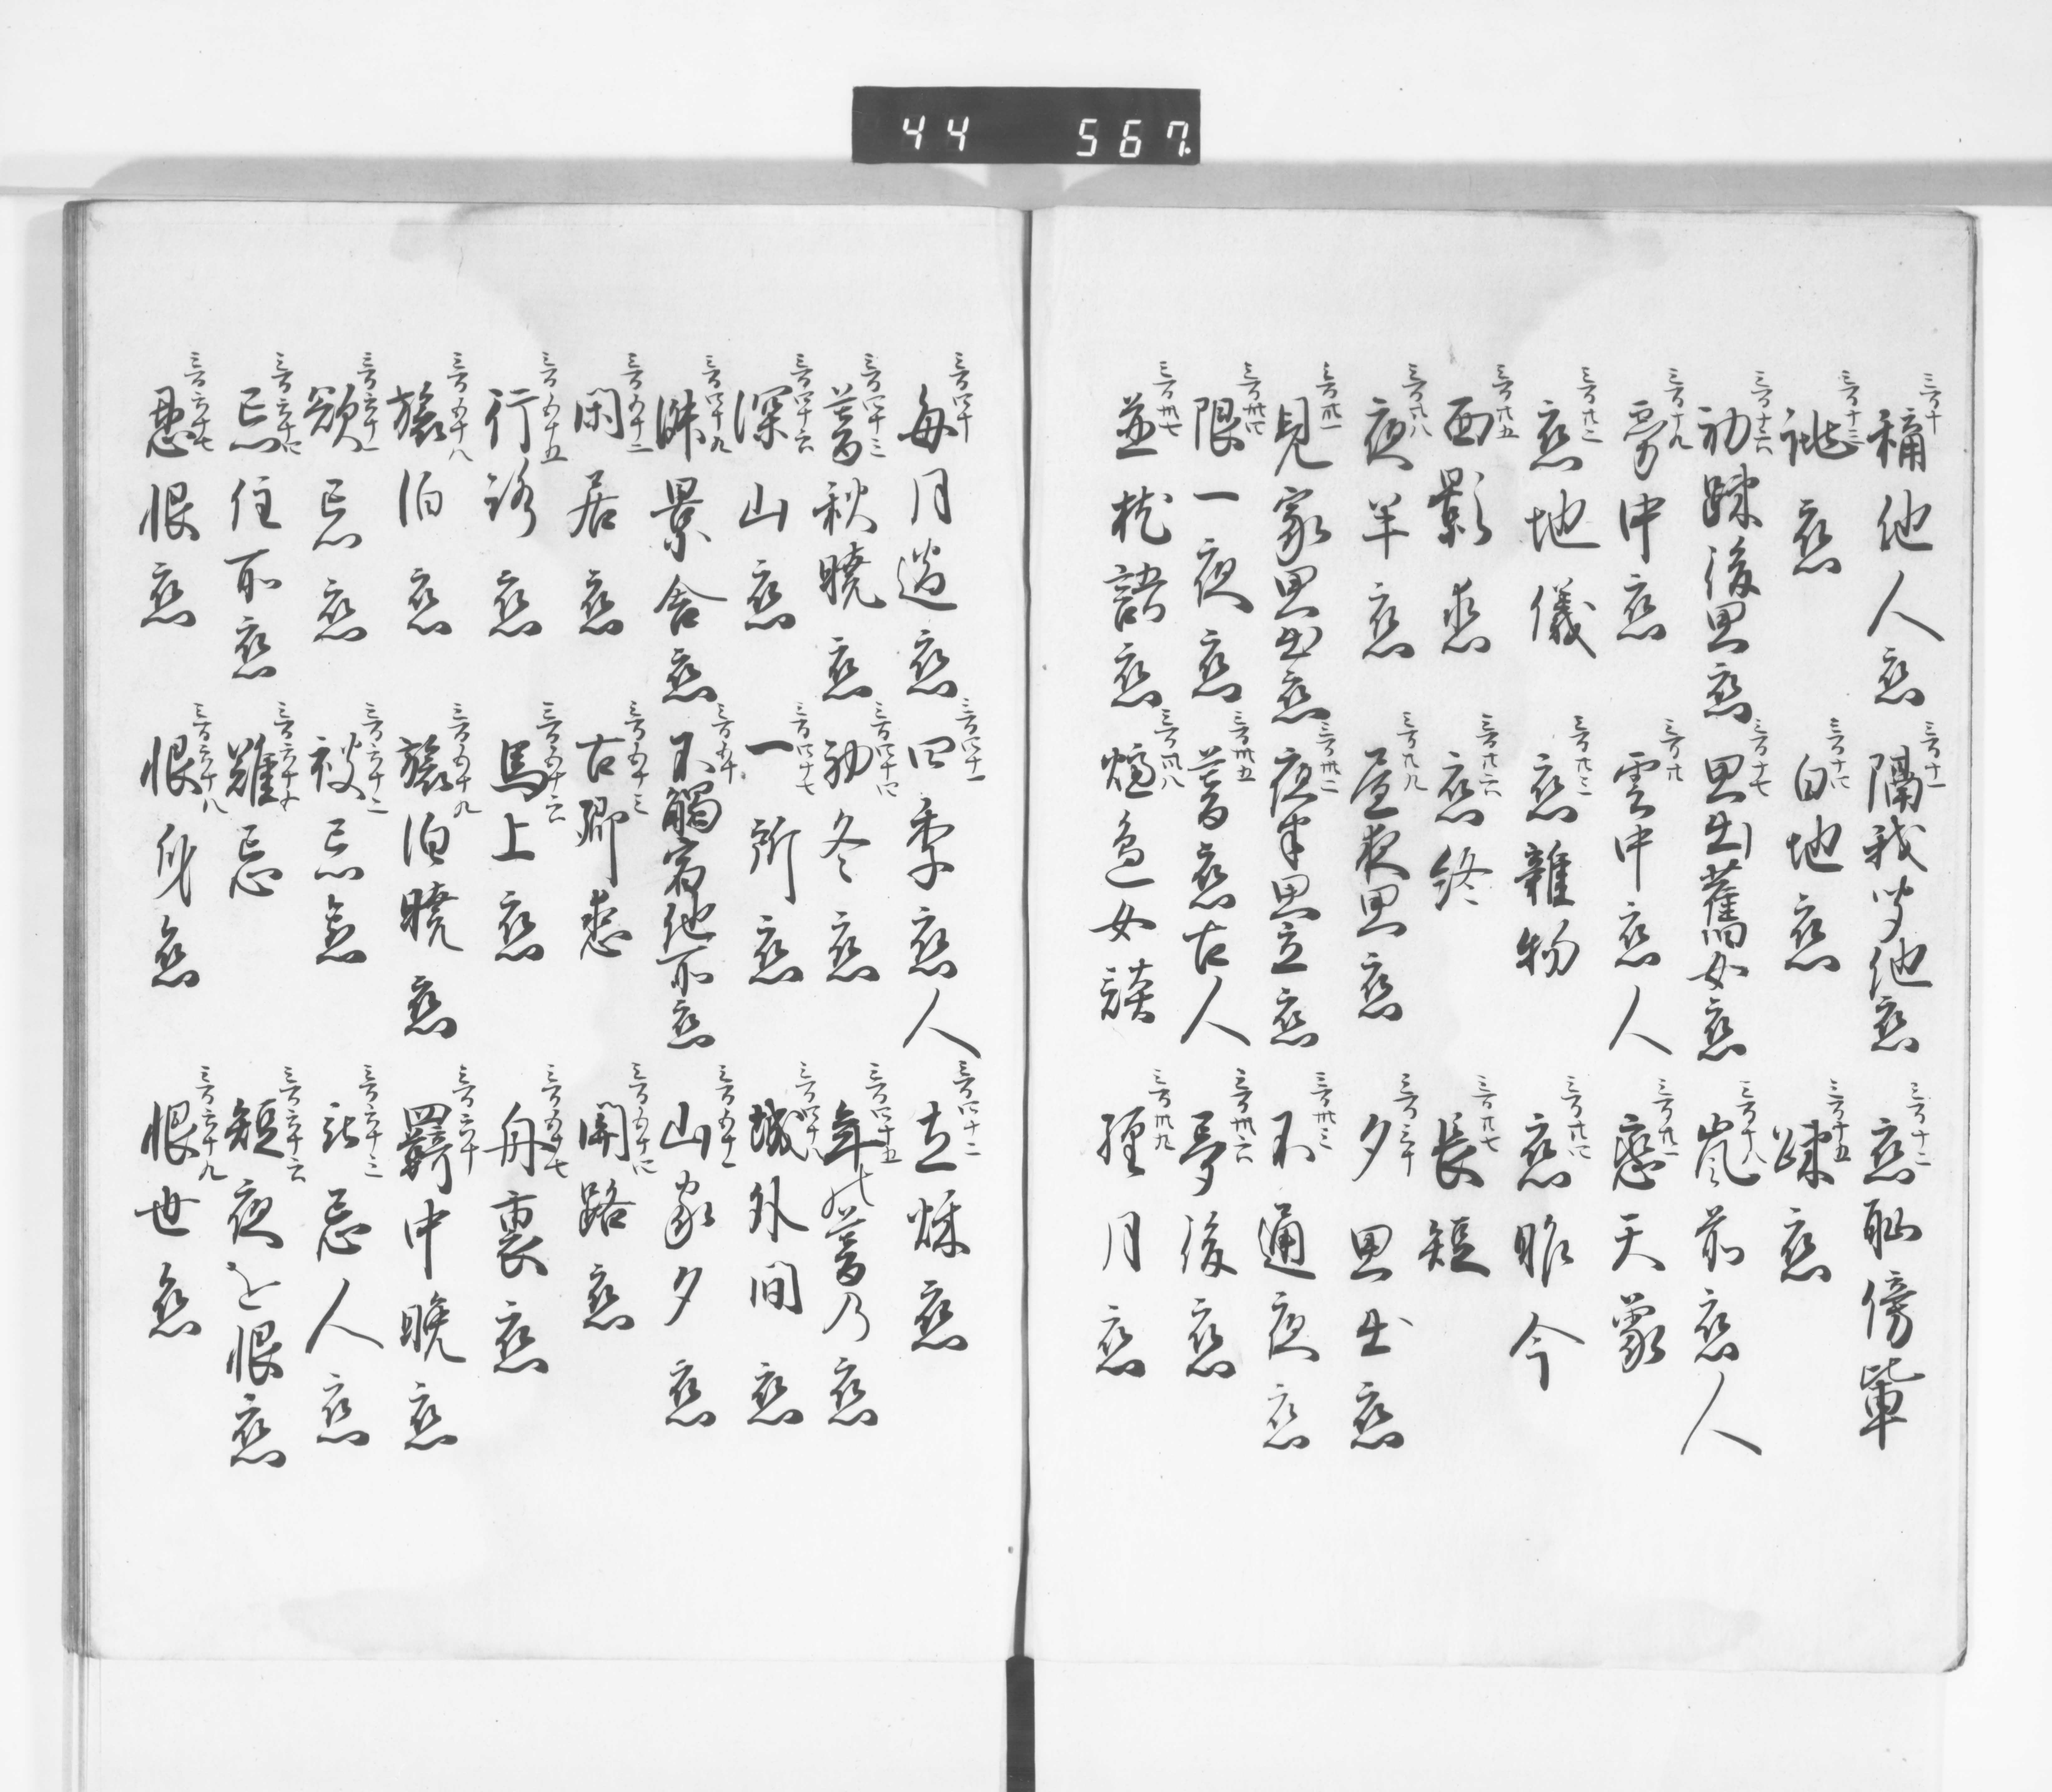 44 567
三百十 稱他人恋 三百十一 隔我聞他恋 三百十二 恋恥傍輩
三百十三 誂恋 三百十四 白地恋 三百十五 疎恋
三百十六 初疎後思恋 三百十七 思出舊女恋 三百十八 嵐前恋人
三百十九 雾中恋 三百廿 雲中恋人 三百廿一 恋天象
三百廿二 恋地儀 三百廿三 恋雜物 三百廿四 恋昨今
三百廿五 面影恋 三百廿六 恋終 三百廿七 長短
三百廿八 夜半恋 三百廿九 昼夜思恋 三百三十 夕思出恋
三百卅一 見家思出恋 三百卅二 夜半思立恋 三百卅三 不通夜恋
三百卅四 限一夜恋 三百卅五 暮恋古人 三百卅六 夢後恋
三百卅七 並枕語恋 三百卅八 爐邊女談 三百卅九 経月恋
三百四十 毎月過恋 三百四十一 四季恋人 三百四十二 立秋恋
三百四十三 暮秋曉恋 三百四十四 初冬恋 三百四十五 年の暮乃恋
三百四十六 深山恋 三百四十七 一所恋 三百四十八 城外間恋
三百四十九 眺景舍恋 三百五十 不觸宿他所恋 三百五十一 山家夕恋
三百五十二 閑居恋 三百五十三 古郷恋 三百五十四 関路恋
三百五十五 行路恋 三百五十六 馬上恋 三百五十七 舟裏恋
三百五十八 旅泊恋 三百五十九 旅泊曉恋 三百六十 羇中晩恋
三百六十一 欲忘恋 三百六十二 被忘恋 三百六十三 忘人恋
三百六十四 忘住所恋 三百六十五 難忘 三百六十六 短夜を恨恋
三百六十七 恨恋 三百六十八 恨身恋 三百六十九 恨世恋